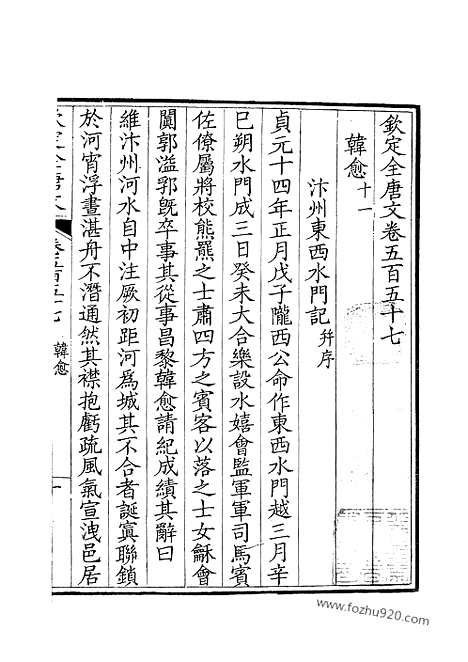 欽定全唐文卷五百五十七
韓愈十一
汴州東西水門記并序
貞元十四年正月戊子隴西公命作東西水門越三月辛
巳朔水門成三日癸未大合樂設水嬉會監軍軍司馬賓
佐僚屬將校熊羆之士肅四方之賓客以落之士女龢會
闐郭溢郛既卒事其從事昌黎韓愈請紀成績其辭曰
維汴州河水自中注厥初距河爲城其不合者誕寘聯鎖
於河宵浮晝湛舟不潛通然其襟抱虧疏風氣宣洩邑居
韓愈
www.fozhu920.com